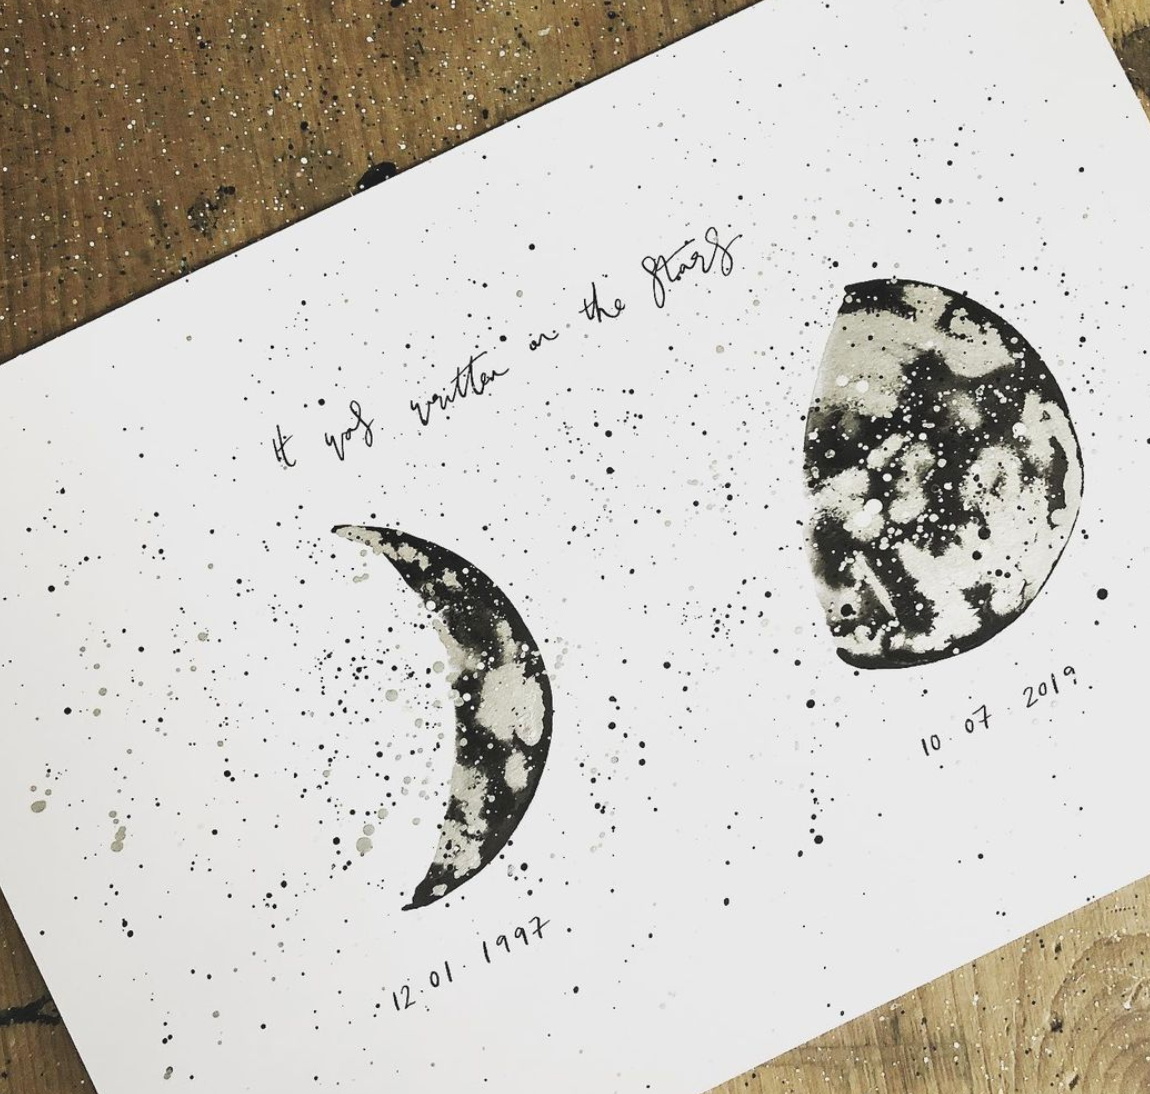 It was written on the Stars
12.01.1997
10.07.2019